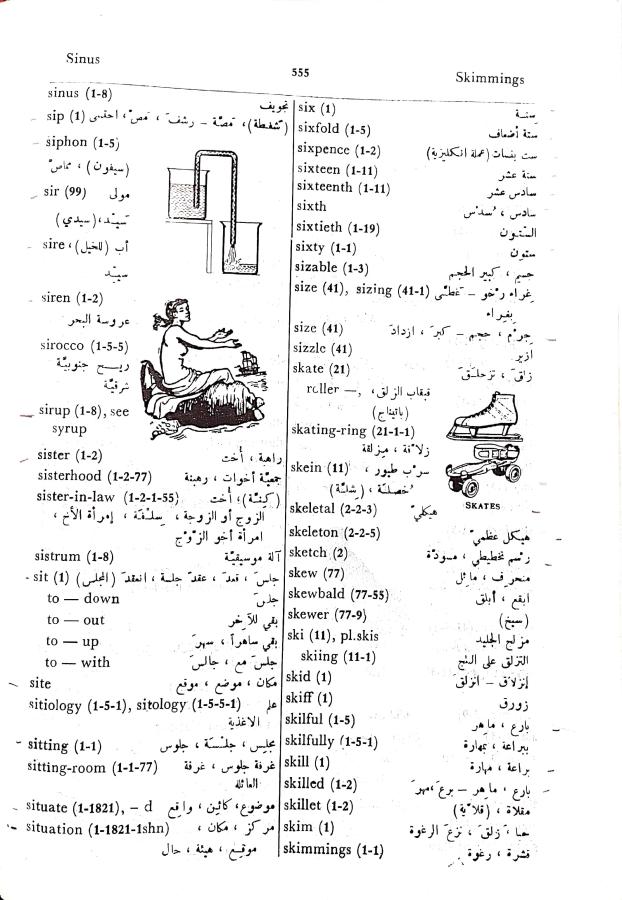 Sinus
555
Skimmings
sinus (1-8) تجويف
sip (1) (شفطة)، مَصّة – رشف، مص، احتسى
siphon (1-5)
(سيفون) ، مماص
sir (99) مولى
سيّد، (سيدي)
sire ، أب (للخيل)
سيّد
siren (1-2)
عروسة البحر
sirocco (1-5-5)
ريح جنوبيّة
شرقيّة
sirup (1-8), see
syrup
sister (1-2) راهبة ، أخت
sisterhood (1-2-77) جمعيّة أخوات ، رهبنة
sister-in-law (1-2-1-55) (كنّة)، أخت
الزوج أو الزوجة، سلفة ، إمرأة الأخ ،
امرأة أخو الزوج
sistrum (1-8) آلة موسيقيّة
sit (1) جلس، قعد، عقد جلسة ، انعقد (المجلس)
to — down جلس
to — out بقي للآخر
to — up بقي ساهراً ، سهر
to — with جلس مع ، جالس
site مكان ، موضع ، موقع
sitiology (1-5-1), sitology (1-5-5-1) علم
الاغذية
sitting (1-1) مجلس ، جلسة ، جلوس
sitting-room (1-1-77) غرفة جلوس ، غرفة
العائلة
situate (1-1821), – d موضوع، كائن ، واقع
situation (1-1821-1shn) مركز ، مكان ،
موقع ، هيئة ، حال
six (1) ستة
sixfold (1-5) ستة أضعاف
sixpence (1-2) ست بنسات (عملة انكليزية)
sixteen (1-11) ستة عشر
sixteenth (1-11) سادس عشر
sixth سادس ، سدس
sixtieth (1-19) الستّون
sixty (1-1) ستون
sizable (1-3) جسيم ، كبير الحجم
size (41), sizing (41-1) غراء رخو – غطّى
بغراء
size (41) جرم ، حجم – كبر، ازداد
sizzle (41) ازيز
skate (21) زلق ، تزحلق
roller —, قبقاب الزلق،
(باتيناج)
skating-ring (21-1-1)
زلاقة ، مزلقة
skein (11) سرب طيور ،
خصلة ، (شلّة)
SKATES
skeletal (2-2-3) هيكلي
skeleton (2-2-5) هيكل عظمي
sketch (2) رسم تخطيطي ، مسودّة
skew (77) منحرف ، مائل
skewbald (77-55) ابقع ، أبلق
skewer (77-9) (سيخ)
ski (11), pl.skis مزلج الجليد
skiing (11-1) التزلق على الثلج
skid (1) إنزلاق – انزلق
skiff (1) زورق
skilful (1-5) بارع ، ماهر
skilfully (1-5-1) ببراعة ، بمهارة
skill (1) براعة ، مهارة
skilled (1-2) بارع ، ماهر – برع، مهر
skillet (1-2) مقلاة ، (قلاّية)
skim (1) زلق، نزع الرغوة
skimmings (1-1) قشرة ، رغوة